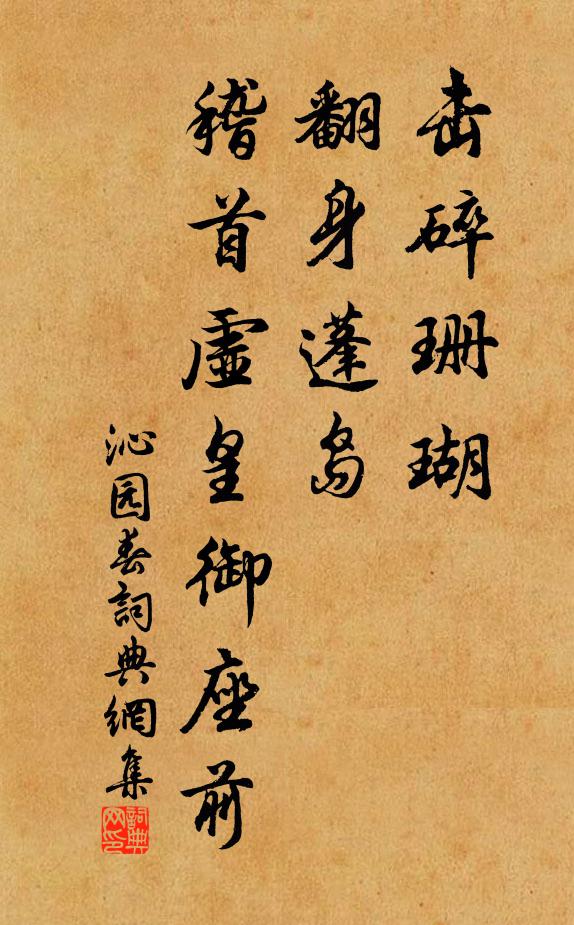 击碎珊瑚
翻身蓬岛
稽首虚皇御座前
沁园春詞典網集
詞典网印